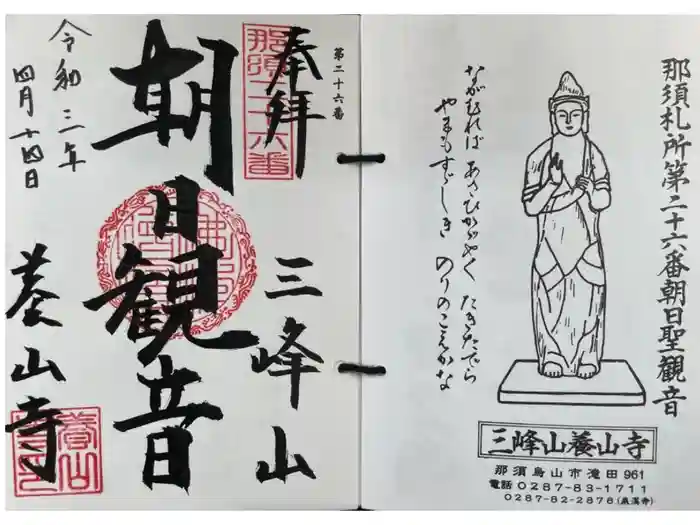 第二十六番
奉拝
那須二十六番
三峰山
朝日観音
令和三年
四月十四日
養山寺
那須札所第二十六番朝日聖観音
ながむれば あさひかがやく たきたでら
やまもすずしき のりのこえかな
三峰山養山寺
那須烏山市滝田961
電話0287-83-1711
0287-82-2876(泉渓寺)